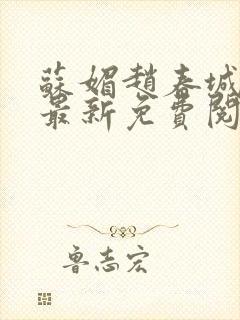 蘇媚趙春城
最新免費閱
魯志宏